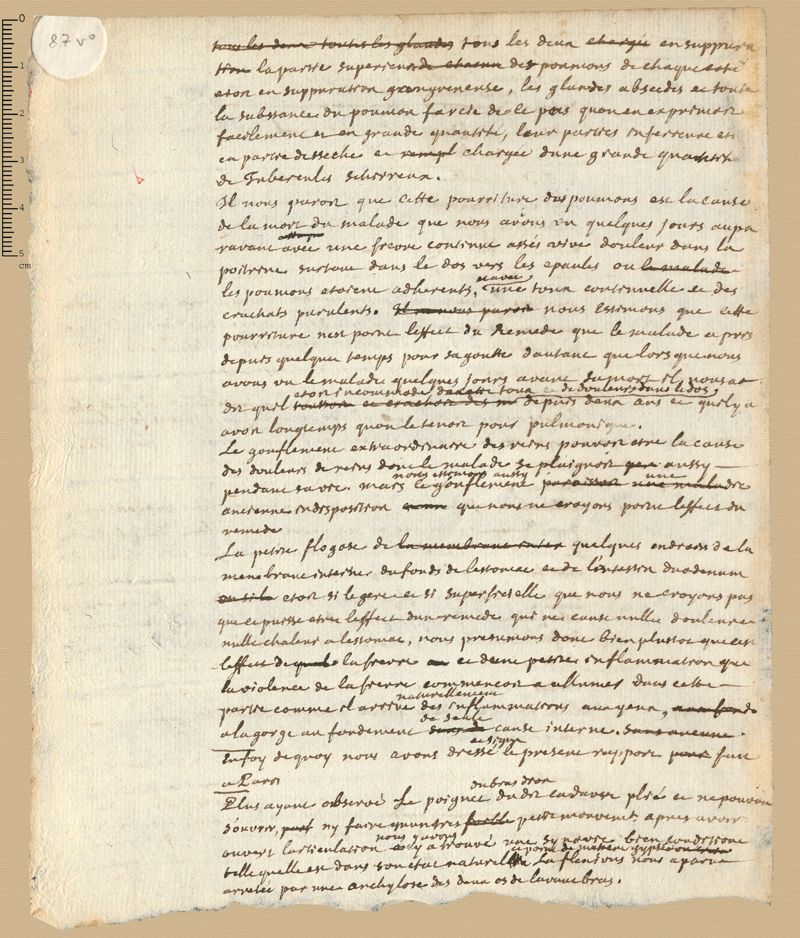 87 vo
tous les deux toutes les glandes tous les deux chargés en suppura
tion la partie superieure de chacun des poumons de chaque coté
etoit en suppuration gangreneuse, les glandes abscedés et toute
la substance du poumon farcie de ce pus quon en exprimoit
facilement et en grande quantité, leur parties inferieure etoit
en partie desseché et rempl chargée dune grande quantité
de Tubercules schirreux.
Il nous paroit que cette pourriture des poumons est la cause
de la mort du malade que nous avons vu quelques jours aupa
ravant avec une fievre continue assés vive douleur dans la
poitrine surtout dans le dos vers les epaules ou le malade
les poumons etoient adherents, et avec une toux continuelle et des
crachats purulents. Il nous paroit nous estimons que cette
pourriture nest point leffect du Remede que le malade a pris
depuis quelque temps pour sa goutte dautant que lors que nous
avons vu le malade quelques jours avant sa mort il nous a
dit quil etoit incommodé de cette toux et de douleurs dans le dos
toussoit et crachoit des depuis deux ans et quil y a
avoit longtemps quon le tenoit pour pulmonique.
Le gonflement extraordinaire des reins pouvoit etre la cause
des douleurs de reins dont le malade se plaignoit aussy
pendant sa vie. mais nous estimons aussy le gonflement paroissoit une maladie
ancienne indisposition que nous ne croyons point leffect du
remede
La petite flogose de la membrane inter quelques endroits de la
membrane interne du fond de lestomac et de lintestin duodenum
etoit si legere et si superficielle que nous ne croyons pas
que ce puisse etre leffect dun remede qui ne cause nulle douleur ne
nulle chaleur a lestomac, nous presumons donc bien plustot que cest
leffect de la fievre et dune petite inflammation que
la violence de la fievre commençoit a allumer dans cette
partie comme il arrive naturellement des inflammations aux yeux,
a la gorge au fondement de seule cause interne. sans aucune
En foy de quoy nous avons dressé et signé le present rapport fait
a Paris
Plus ayant observé Le poignet du bras droit du dit cadavre plié et ne pouvant
souvrir, ny faire quun tres petit mouvement, apres avoir
ouvert larticulation nous y avons trouvé une synovie bien conditionée
telle quelle est dans son etat naturel et point de matiere gypseuse La flexion nous a paru
arretée par une anchylose des deux os de lavant bras.
0
1
2
3
4
5
cm